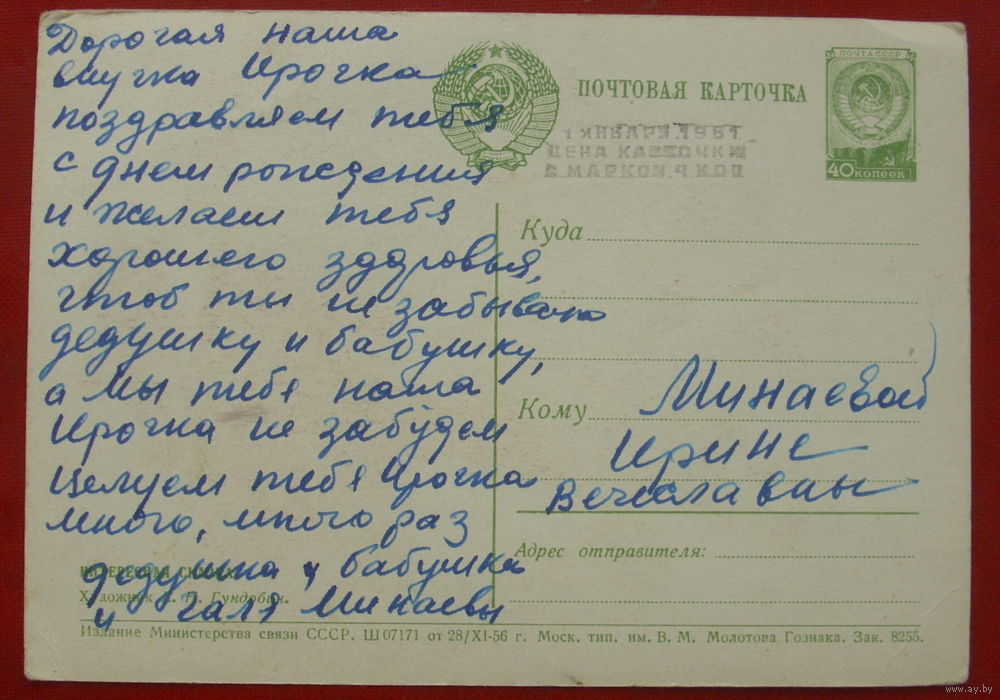 Дорогая наша
внучка Ирочка
поздравляем тебя
с днем рождения
и желаем тебя
хорошего здоровья,
чтоб ти не забывала
дедушку и бабушку,
а мы тебя наша
Ирочка не забудем
Целуем тебя Ирочка
много, много раз
дедушка и бабушка
и галя Минаевы
ПОЧТОВАЯ КАРТОЧКА
ПОЧТА СССР
40 КОПЕЕК
1 ЯНВАРЯ 1961
ЦЕНА КАРТОЧКИ
С МАРКОЙ 4 КОП
Куда
Кому Минаевой
Ирине
Вечеславны
Адрес отправителя:
ИНТЕРЕСНАЯ
Художник Гундобин.
Издание Министерства связи СССР. Ш 07171 от 28/XI-56 г. Моск. тип. им. В. М. Молотова Гознака. Зак. 8255.
www.ay.by